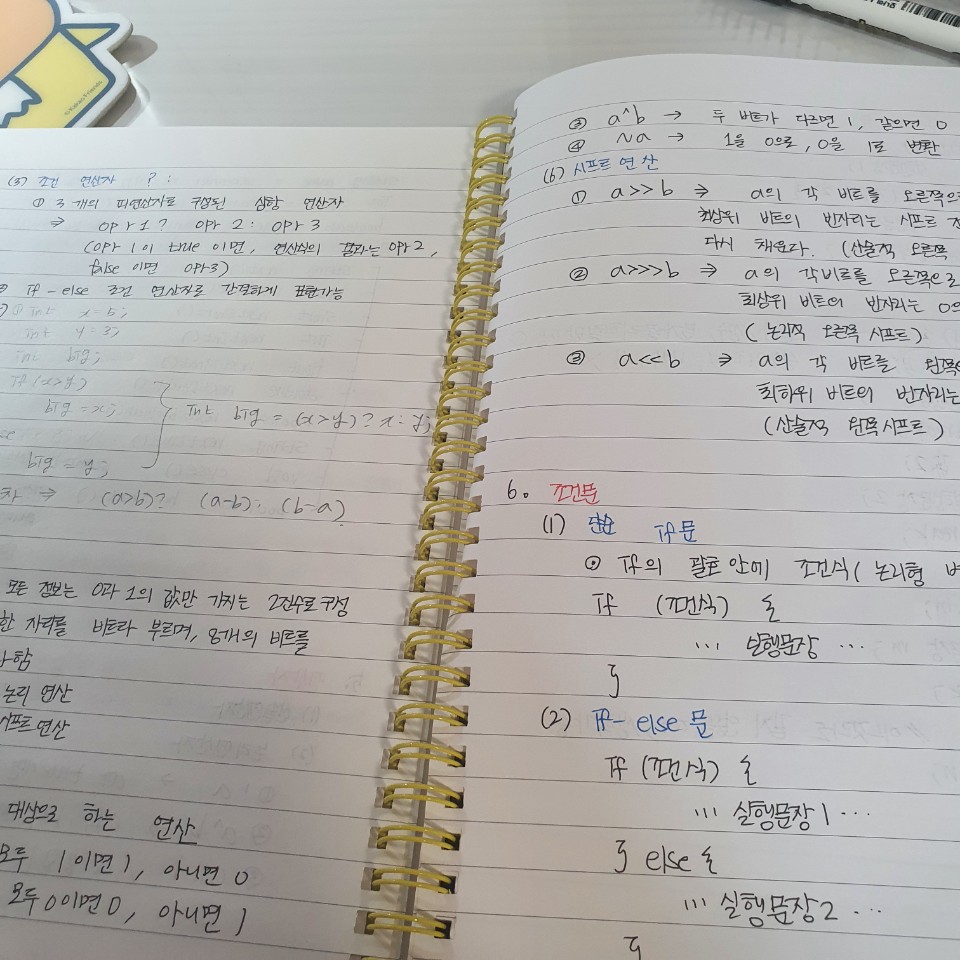 (3) 조건 연산자 ? :
① 3개의 피연산자로 구성된 삼항 연산자
⇒ opr1? opr2: opr3
(opr1이 true이면, 연산식의 결과는 opr2,
false이면 opr3)
② if-else 조건 연산자로 간결하게 표현가능
int x=5;
int y=3;
int big;
if(x>y)
big=x;
int big = (x>y)? x: y;
big=y;
⇒ (a>b)? (a-b): (b-a)
모든 정보는 0과 1의 값만 가지는 2진수로 구성
한 자리를 비트라 부르며, 8개의 비트를
함
논리 연산
시프트 연산
대상으로 하는 연산
모두 1이면 1, 아니면 0
모두 0이면 0, 아니면 1
③ a^b → 두 비트가 다르면 1, 같으면 0
④ ~a → 1을 0으로, 0을 1로 변환
(6) 시프트 연산
① a>>b ⇒ a의 각 비트를 오른쪽으
최상위 비트의 빈자리는 시프트 전
다시 채운다. (산술적 오른쪽
② a>>>b ⇒ a의 각 비트를 오른쪽으로
최상위 비트의 빈자리는 0으
(논리적 오른쪽 시프트)
③ a<<b ⇒ a의 각 비트를 왼쪽으
최하위 비트의 빈자리는
(산술적 왼쪽 시프트)
6. 조건문
(1) 단순 if문
⊙ if의 괄호 안에 조건식(논리형 변
if (조건식) {
... 실행문장 ...
}
(2) if-else 문
if (조건식) {
... 실행문장1 ...
} else {
... 실행문장2 ...
}